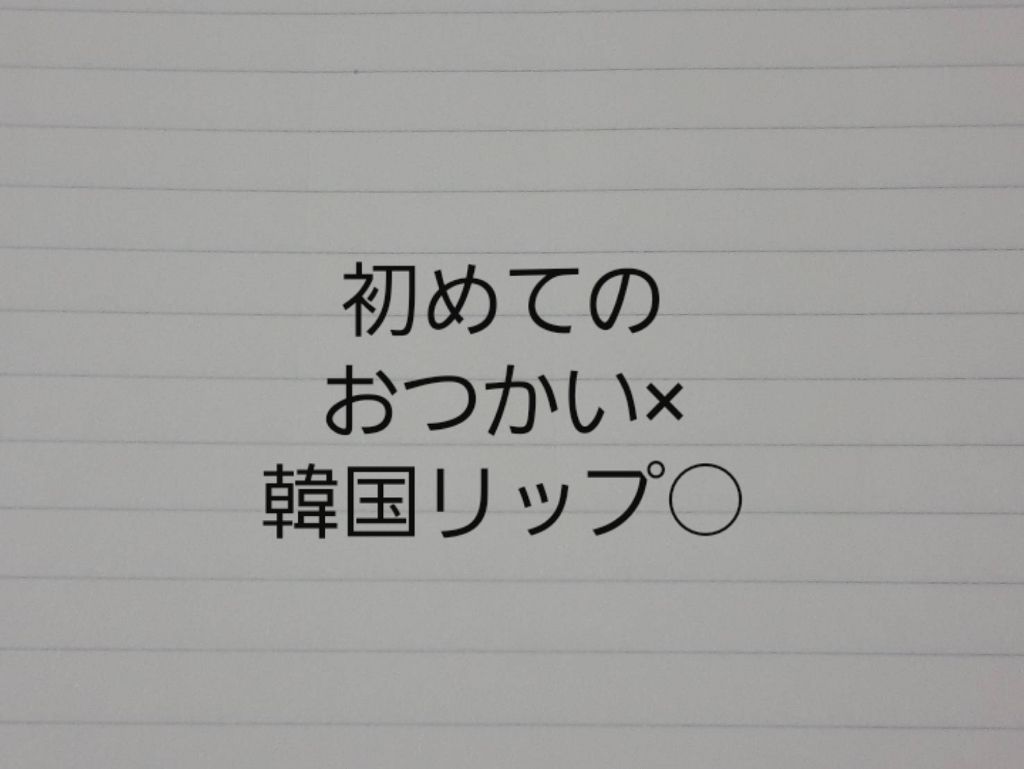 初めての
おつかい×
韓国リップ◯